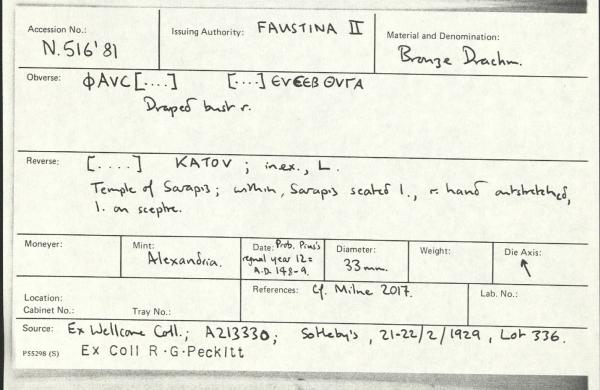 Accession No.:
N.516'81
Issuing Authority: FAUSTINA II
Material and Denomination:
Bronze Drachm.
Obverse: ΦAVC[....] [....]ЄVЄЄB ΘVГA
Draped bust r.
Reverse: [....] KATOV ; in ex., L.
Temple of Sarapis; within, Sarapis seated l., r. hand outstretched,
l. on sceptre.
Moneyer:
Mint:
Alexandria.
Date: Prob. Pius's
regnal year 12 =
A.D. 148-9.
Diameter:
33 mm.
Weight:
Die Axis:
↖
Location:
Cabinet No.: Tray No.:
References: Cf. Milne 2017.
Lab. No.:
Source: Ex Wellcome Coll.; A213330; Sotheby's, 21-22/2/1929, Lot 336.
P55298 (S) Ex Coll R.G.Peckitt